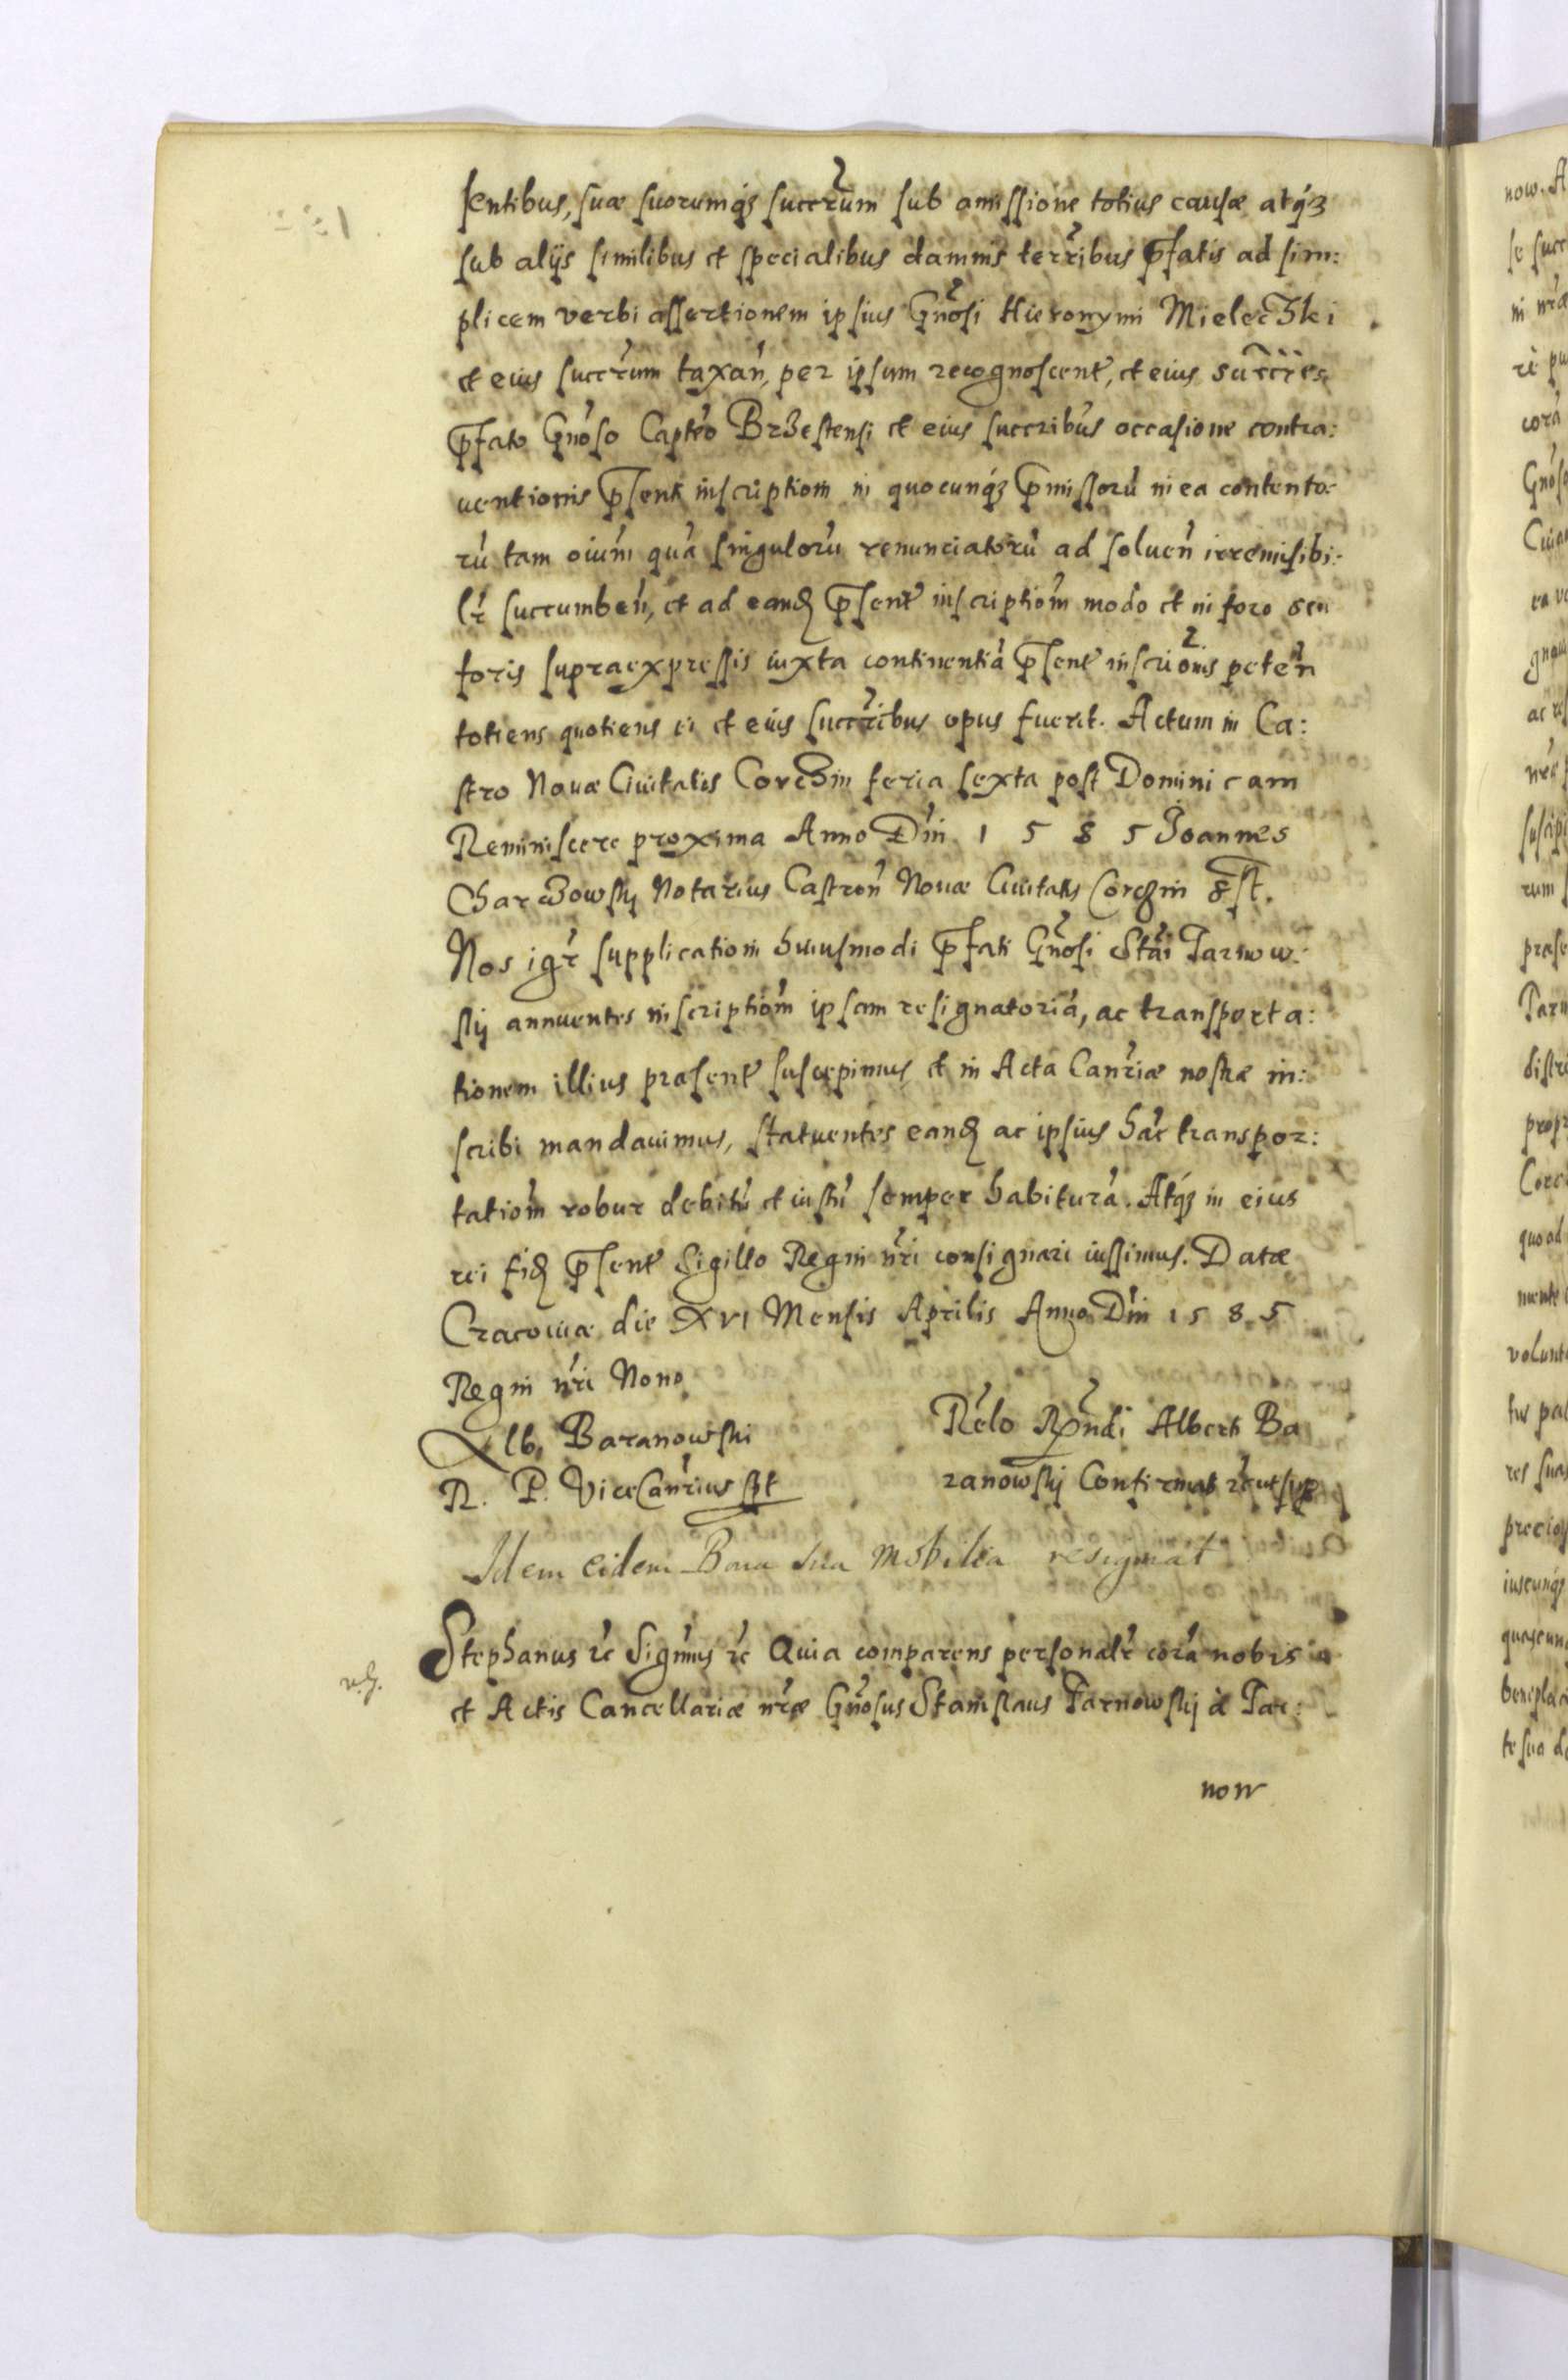 sentibus, suæ suorumqȝ succrum sub amissione totius causæ atqȝ
sub alijs similibus et specialibus damnis terribus pfatis ad sim:
plicem verbi assertionem ipsius Gnosi Hieronymi Mieleczki
et eius succrum taxan, per ipsum recognoscent, et eius succres
pfato Gnoso Capteo Brzestensi et eius succribus occasione contra:
uentionis psent inscriptiom in quocunqȝ pmissoru in ea contento:
ru tam oium qua singuloru renunciatoru ad soluen irremisibi:
lr succumben, et ad eand psent inscriptiom modo et in foro seu
foris supraexpressis iuxta continentia psent inscrionis peten
totiens quotiens ei et eius succribus opus fuerit. Actum in Ca:
stro Nouæ Ciuitatis Corczin feria sexta post Dominicam
Reminiscere proxima Anno Dni 1585 Joannes
Charzowskij Notarius Castren Nouæ Ciuitatis Corczin sst.
Nos igr supplicatiom huiusmodi pfati Gnosi Stai Tarnow:
skij annuentes inscriptiom ipsam resignatoria, ac transporta:
tionem illius præsent suscepimus et in Acta Canriæ nostræ in:
scribi mandauimus, statuentes eand ac ipsius hac transpor:
tatiom robur debitu et iustu semper habitura. Atqȝ in eius
rei fid psent Sigillo Regni nri consignari iussimus. Datæ
Cracouiæ die XVI Mensis Aprilis Anno Dni 1585
Regni nri Nono
Alb. Baranowski
R. P. ViceCanrius sst
Relo Rndi Alberti Ba
ranowskij Confirmat rc ut sup
Idem eidem Bona sua mobilia resignat
Stephanus rc Signmus rc Quia comparens personalr cora nobis
et Actis Cancellariæ nræ Gnosus Stanislaus Tarnowskij à Tar:
now